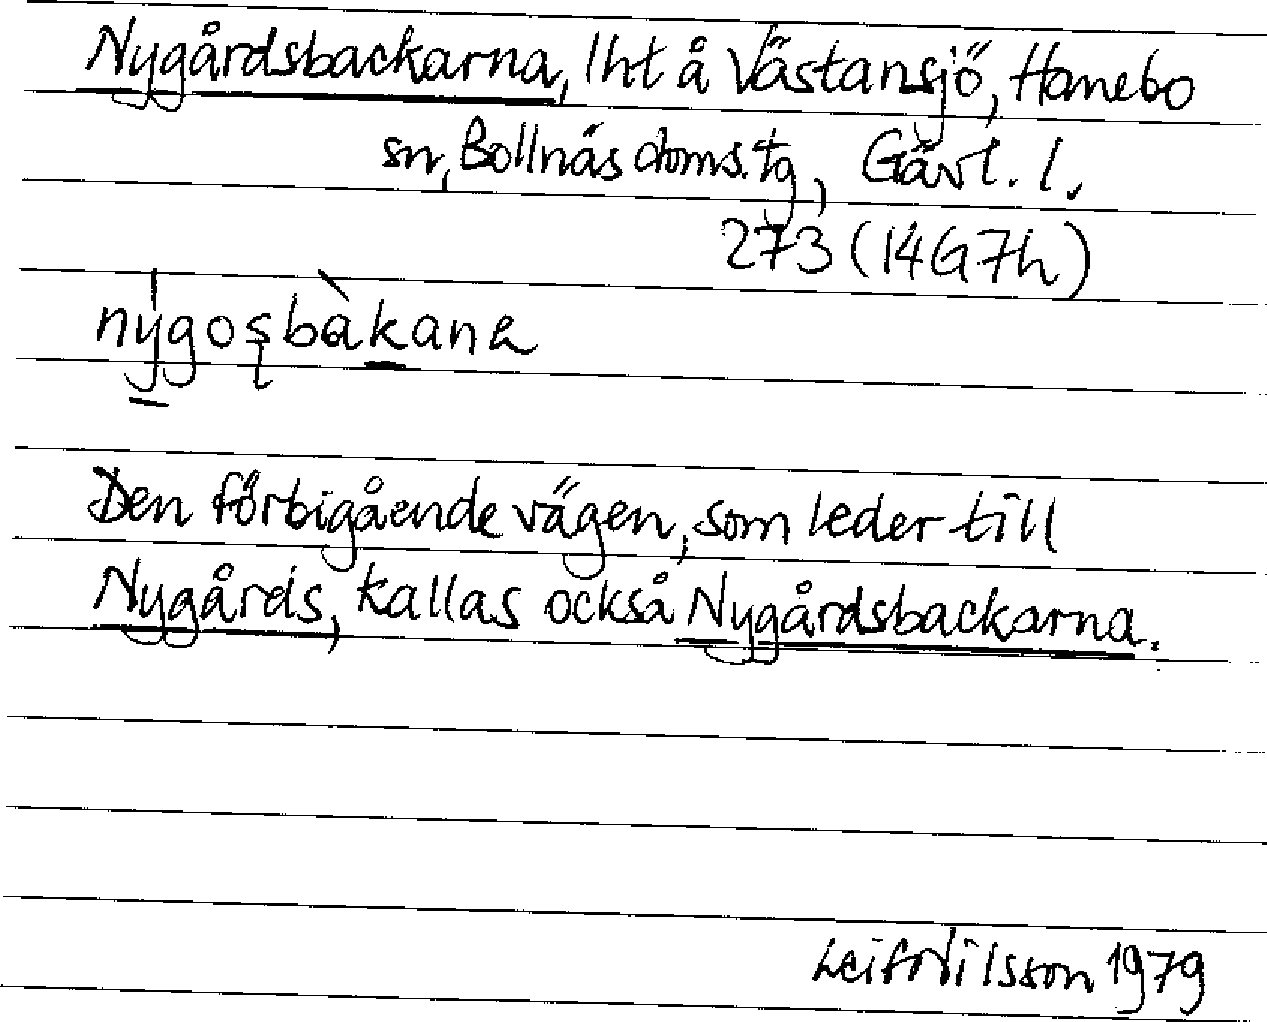 Nygårdsbackarna, lht å Västansjö, Hanebo
sn, Bollnäs doms.tg, Gävl. l.
273 (14G7h)
nýgosbàkana
Den förbigående vägen, som leder till
Nygårds, kallas också Nygårdsbackarna.
Leif Nilsson 1979